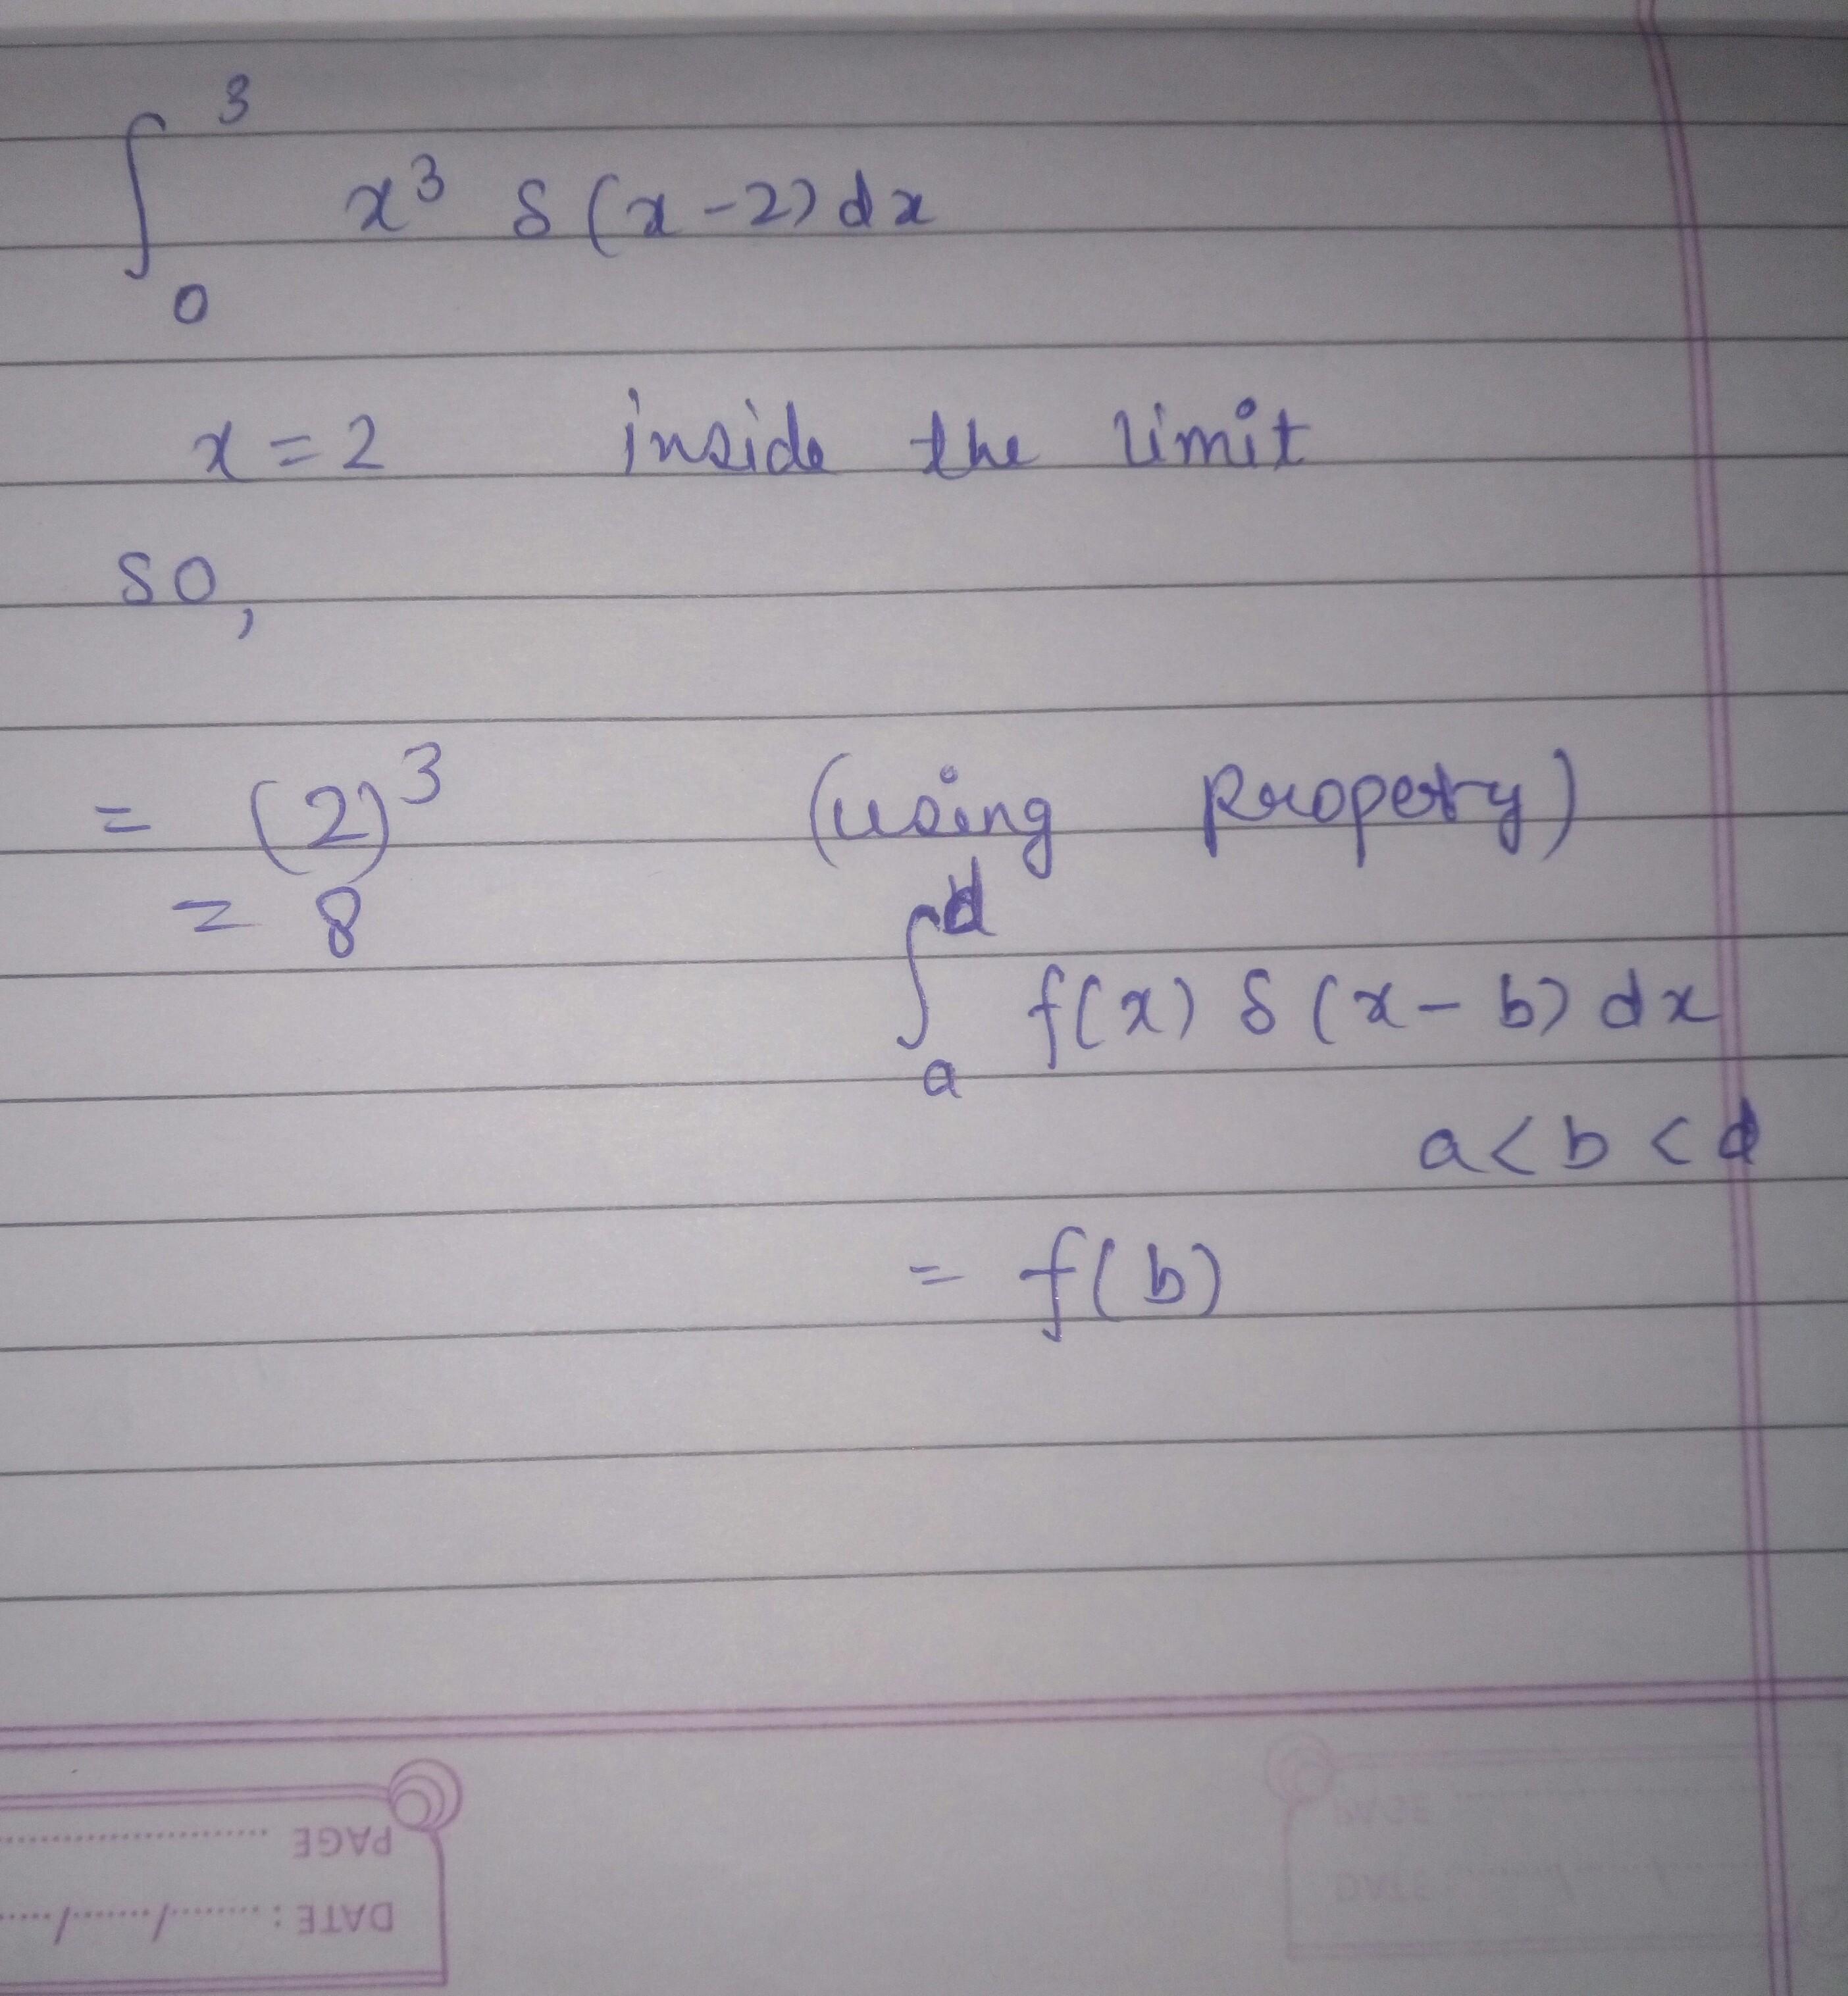 ∫₀³ x³ δ(x-2) dx
x = 2 inside the limit
so,
= (2)³ (using Property)
= 8
∫ₐᵈ f(x) δ(x-b) dx
a<b<d
= f(b)
PAGE
DATE :